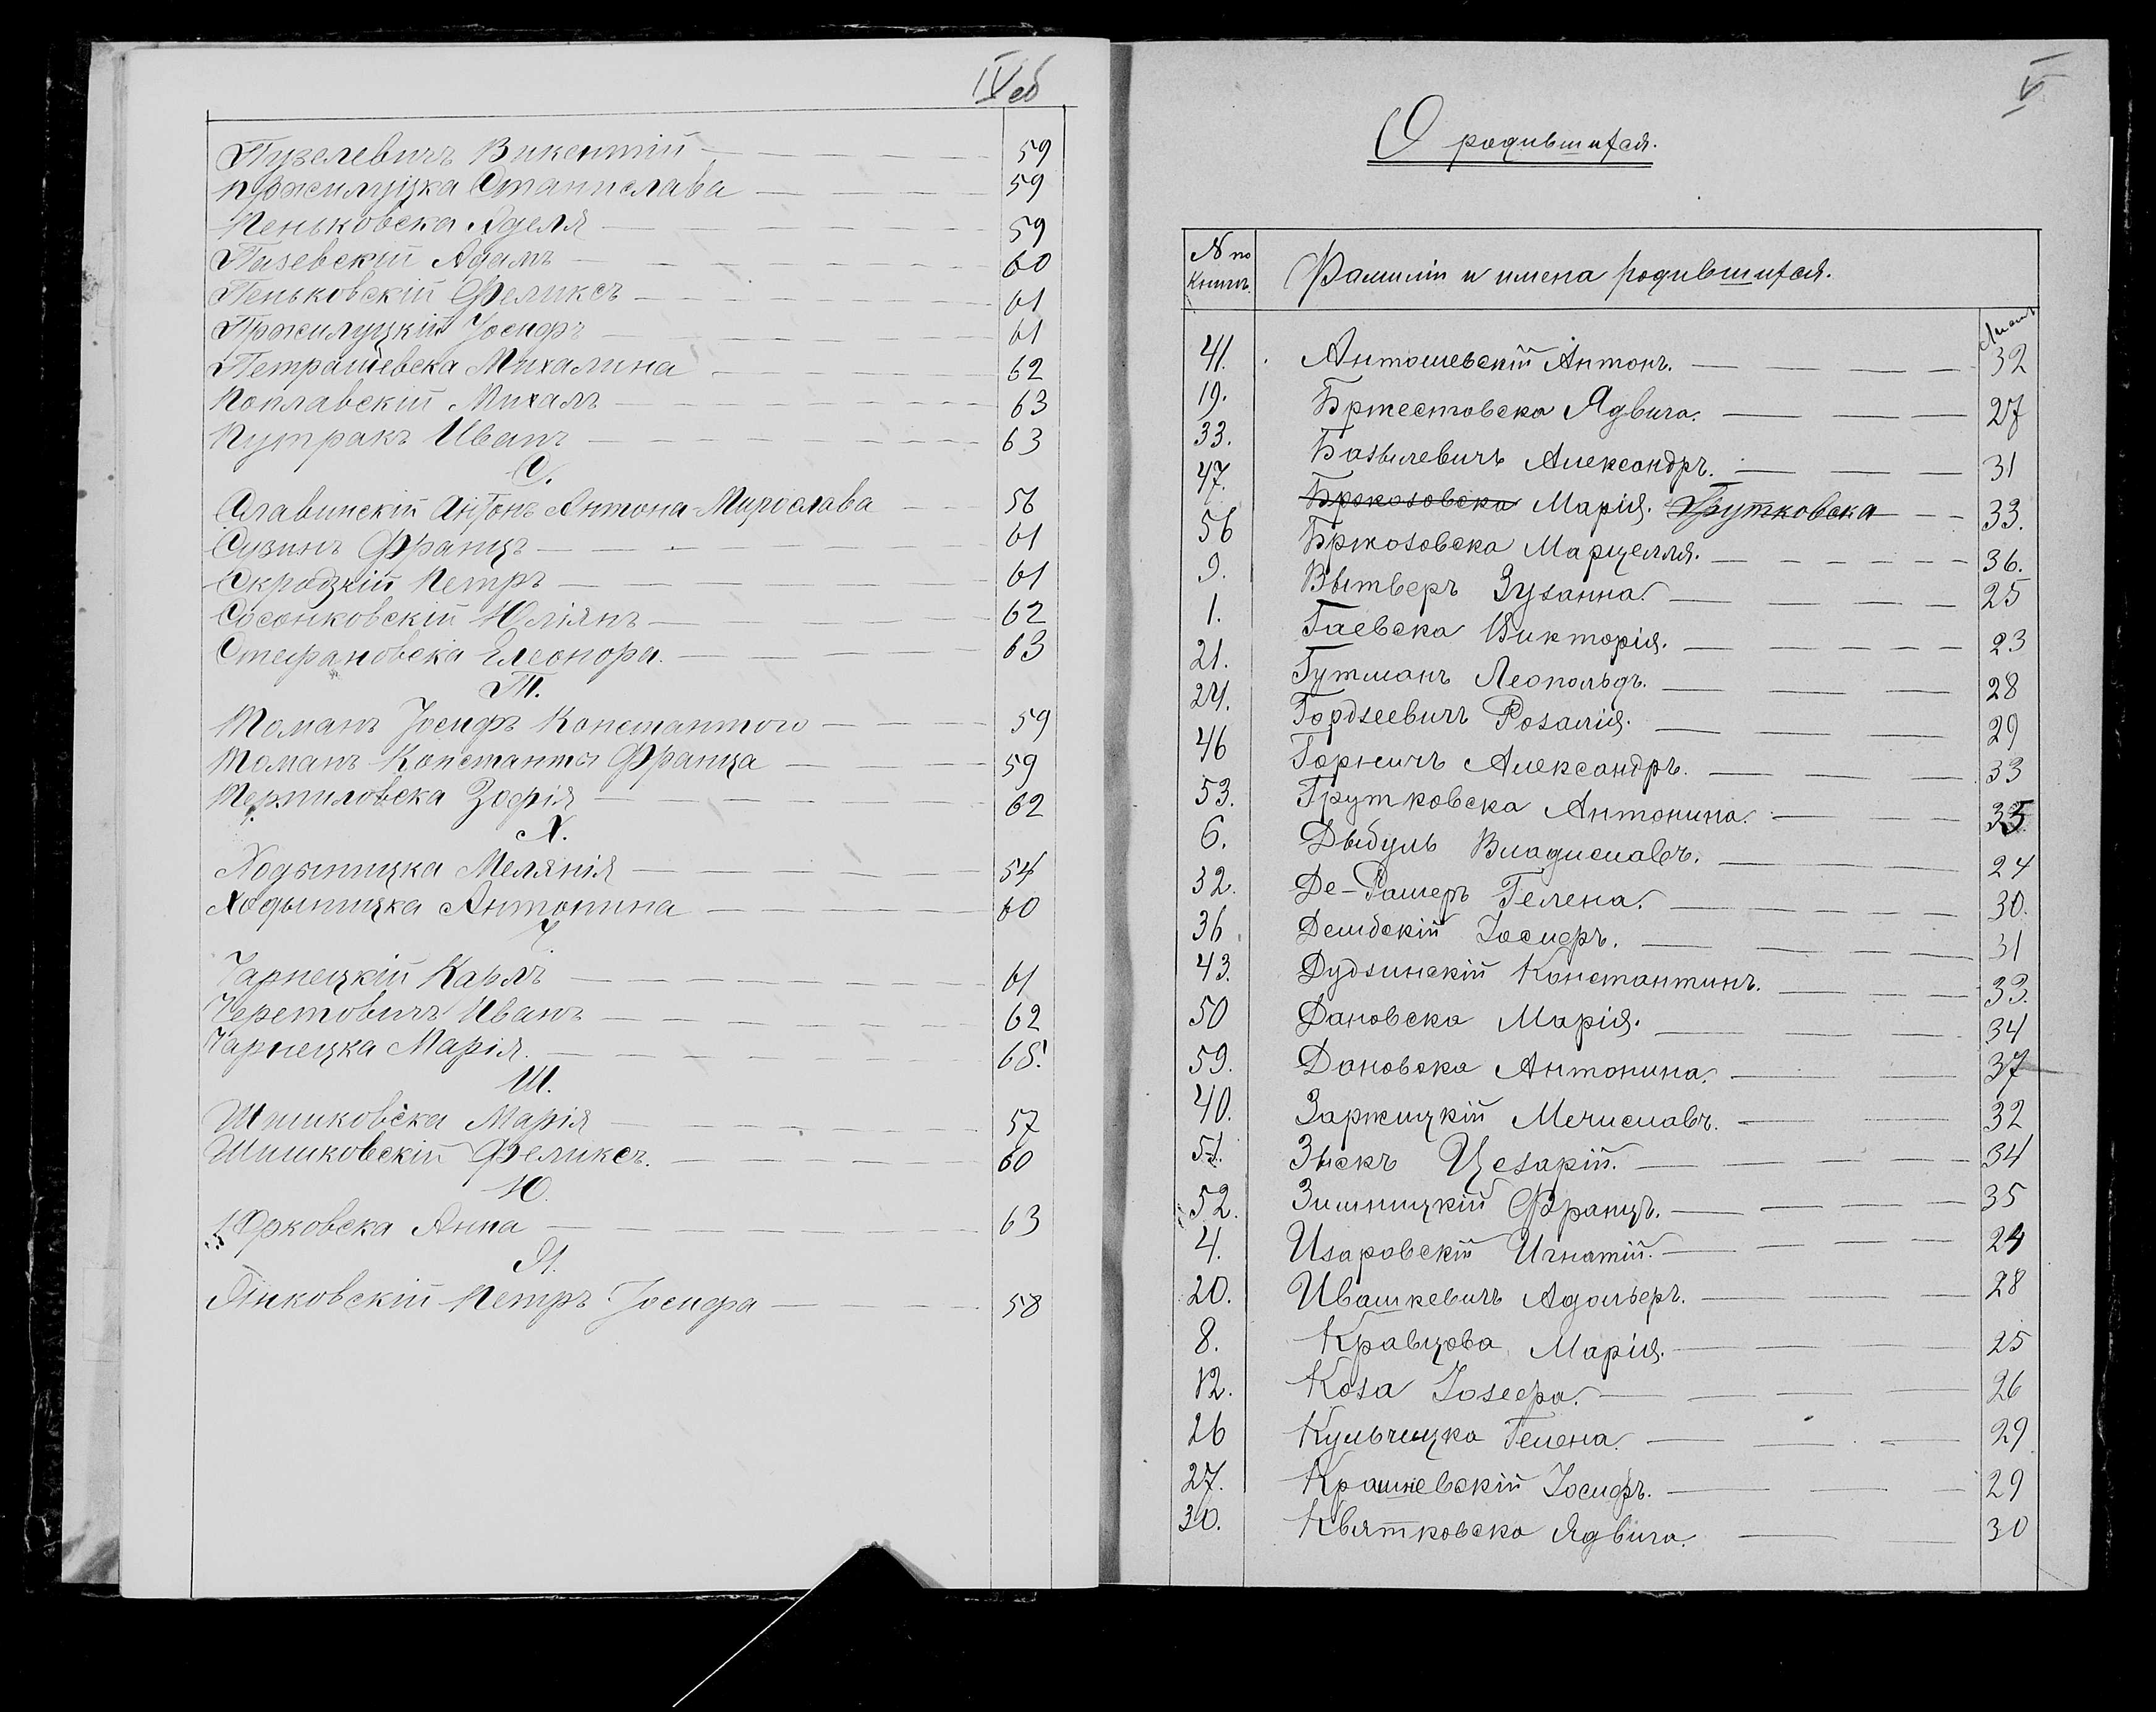 IV об
Пузелевичъ Викентій 59
Пржилуцка Станислава 59
Пеньковска Аделя 59
Пазевскій Адамъ 60
Пеньковскій Феликсъ 61
Пржилуцкій Іосифъ 61
Петрашевска Михалина 62
Поплавскій Михалъ 63
Путракъ Иванъ 63
С.
Славинскій Антонъ Антона-Мирослава 56
Сузинъ Францъ 61
Скродзкій Петръ 61
Сосонковскій Юліянъ 62
Стефановска Елеонора. 63
Т.
Томанъ Іосифъ Константого 59
Томанъ Константы Франца 59
Термиловска Зофія 62
Х.
Ходыницка Мелянія 54
Ходыницка Антонина 60
Ч.
Чарнецкій Карлъ 61
Черетовичъ Иванъ 62
Чарнецка Марія. 65.
Ш.
Шишковска Марія 57
Шишковскій Феликсъ. 60
Ю.
Юрковска Анна 63
Я.
Янковскій Петръ Іосифа 58
V
О родившихся.
N по Книгѣ. Фамиліи и имена родившихся.
Листъ
41. Антошевскій Антонъ. 32
19. Бржестовска Ядвига. 27
33. Базылевичъ Александръ. 31
47. Бржозовска Марія. Грутковска 33.
56 Бржозовска Марцелля. 36.
9. Вытверъ Зузанна. 25
1. Гаевска Викторія. 23
21. Гутманъ Леопольдъ. 28
24. Гордзеевичъ Розалія. 29
46 Горничъ Александръ. 33
53. Грутковска Антонина. 35
6. Дыбуль Владиславъ. 24
32. Де-Рашеръ Гелена. 30.
36. Дембскій Іосифъ. 31
43. Дудзинскій Константинъ. 33.
50 Дановска Марія. 34
59. Дановска Антонина. 37
40. Заржицкій Мечиславъ. 32
51. Зыскъ Цезарій. 34
52. Зимницкій Францъ. 35
4. Изаровскій Игнатій. 24
20. Ивашкевичъ Адольфъ. 28
8. Кравцова Марія. 25
12. Коза Іозефа. 26
26 Кульчицка Гелена. 29
27. Крашневскій Іосифъ. 29
30. Квятковска Ядвига. 30